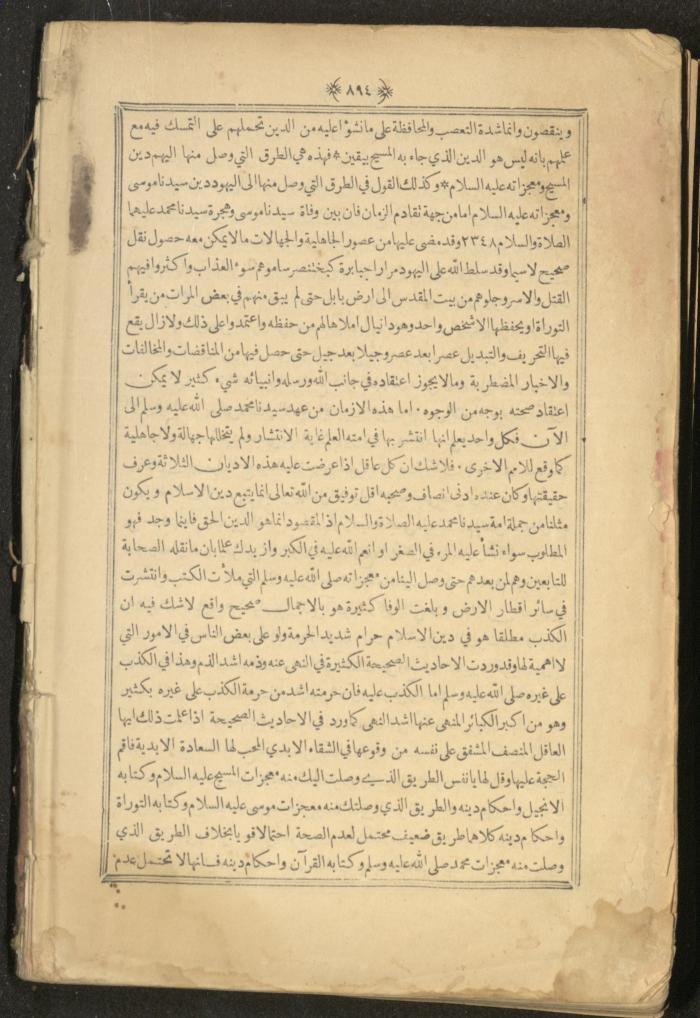 ٨٩٤
وينقصون وانما شدة التعصب والمحافظة على ما نشؤا عليه من الدين تحملهم على التمسك فيه مع
علمهم بانه ليس هو الدين الذي جاء به المسيح بيقين * فهذه هي الطرق التي وصل منها اليهم دين
المسيح ومعجزاته عليه السلام * وكذلك القول في الطرق التي وصل منها الى اليهود دين سيدنا موسى
ومعجزاته عليه السلام اما من جهة تقادم الزمان فان بين وفاة سيدنا موسى وهجرة سيدنا محمد عليهما
الصلاة والسلام ٢٣٤٨ وقد مضى عليها من عصور الجاهلية والجهالات ما لا يمكن معه حصول نقل
صحيح لا سيما وقد سلط الله على اليهود مرارا جبابرة كبختنصر ساموهم سوء العذاب واكثروا فيهم
القتل والاسر وجلوهم من بيت المقدس الى ارض بابل حتى لم يبق منهم في بعض المرات من يقرأ
التوراة او يحفظها الا شخص واحد وهو دانيال املاها لهم من حفظه واعتمدوا على ذلك ولا زال يقع
فيها التحريف والتبديل عصرا بعد عصر وجيلا بعد جيل حتى حصل فيها من المناقضات والمخالفات
والاخبار المضطربة وما لا يجوز اعتقاده في جانب الله ورسله وانبيائه شيء كثير لا يمكن
اعتقاد صحته بوجه من الوجوه . اما هذه الازمان من عهد سيدنا محمد صلى الله عليه وسلم الى
الآن فكل واحد يعلم انها انتشر بها في امته العلم غاية الانتشار ولم يتخللها جهالة ولا جاهلية
كما وقع للامم الاخرى . فلا شك ان كل عاقل اذا عرضت عليه هذه الاديان الثلاثة وعرف
حقيقتها وكان عنده ادنى انصاف وصحبه اقل توفيق من الله تعالى انما يتبع دين الاسلام ويكون
مثلنا من جملة امة سيدنا محمد عليه الصلاة والسلام اذ المقصود انما هو الدين الحق فاينما وجد فهو
المطلوب سواء نشأ عليه المرء في الصغر او انعم الله عليه في الكبر وازيدك علما بان ما نقله الصحابة
للتابعين وهم لمن بعدهم حتى وصل الينا من معجزاته صلى الله عليه وسلم التي ملأت الكتب وانتشرت
في سائر اقطار الارض وبلغت الوفا كثيرة هو بالاجمال صحيح واقع لا شك فيه ان
الكذب مطلقا هو في دين الاسلام حرام شديد الحرمة ولو على بعض الناس في الامور التي
لا اهمية لها وقد وردت الاحاديث الصحيحة الكثيرة في النهي عنه وذمه اشد الذم وهذا في الكذب
على غيره صلى الله عليه وسلم اما الكذب عليه فان حرمته اشد من حرمة الكذب على غيره بكثير
وهو من اكبر الكبائر المنهى عنها اشد النهى كما ورد في الاحاديث الصحيحة اذا علمت ذلك ايها
العاقل المنصف المشفق على نفسه من وقوعها في الشقاء الابدي المحب لها السعادة الابدية فاقم
الحجة عليها وقل لها يا نفس الطريق الذي وصلت اليك منه معجزات المسيح عليه السلام وكتابه
الانجيل واحكام دينه والطريق الذي وصلتك منه معجزات موسى عليه السلام وكتابه التوراة
واحكام دينه كلاهما طريق ضعيف محتمل لعدم الصحة احتمالا قويا بخلاف الطريق الذي
وصلت منه معجزات محمد صلى الله عليه وسلم وكتابه القرآن واحكام دينه فانها لا تحتمل عدم